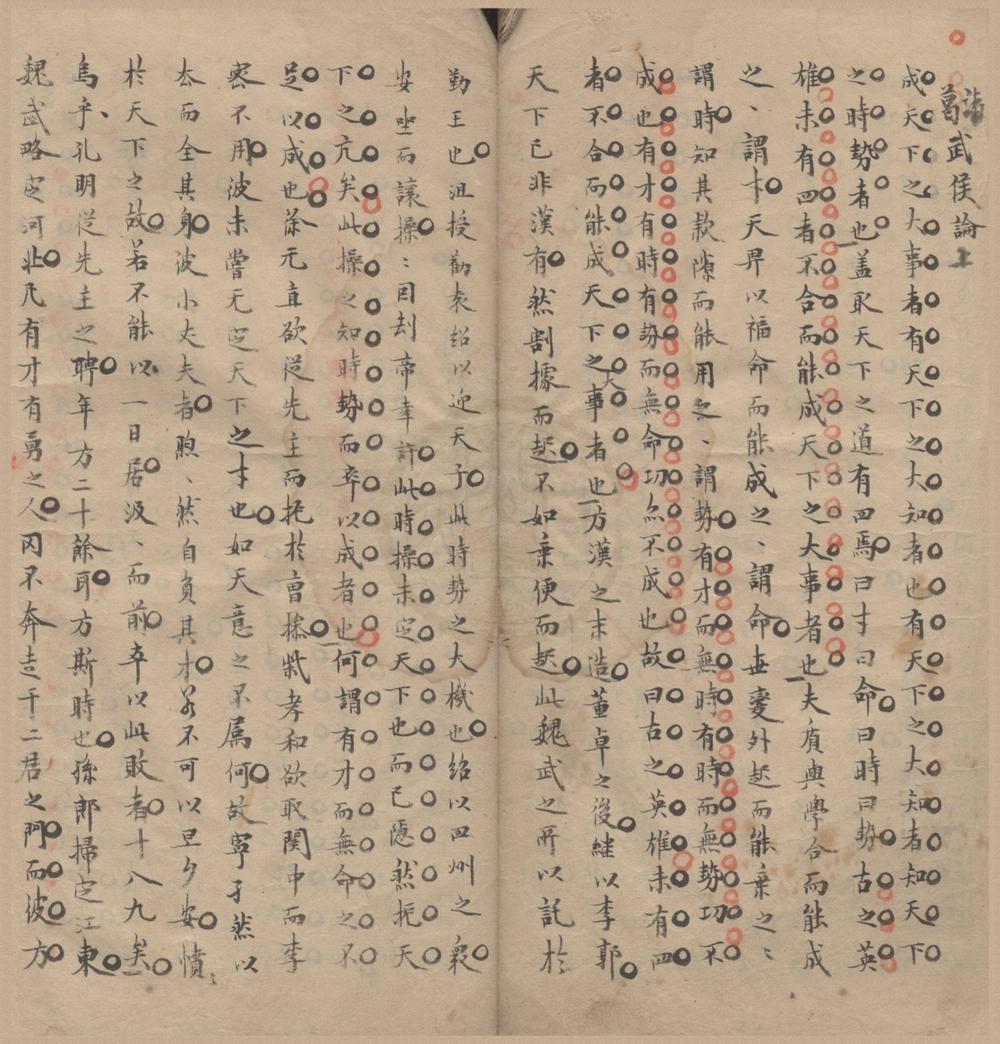 諸葛武侯論上
成天下之大事者有天下之大知者也有天下之大知者知天下
之時勢者也蓋取天下之道有四焉曰才曰命曰時曰勢古之英
雄未有四者不合而能成天下之大事者也夫質與學合而能成
之〻謂才天畀以福命而能成之〻謂命世變外起而能乘之〻
謂時知其款隙而能用之〻謂勢有才而無時有時而無勢功不
成也有才有時有勢而無命功亦不成也故曰古之英雄未有四
者不合而能成天下之大事者也方漢之末造董卓之後繼以李郭
天下已非漢有然割據而起不如乘便而起此魏武之所以託於
勤王也沮授勸袁紹以迎天子此時勢之大機也紹以四州之衆
安坐而讓操〻因刦帝幸許此時操未定天下也而已隱然扼天
下之亢矣此操之知時勢而卒以成者也何謂有才而無命之不
足以成也徐元直欲從先主而扼於曹操龐孝和欲取関中而李
密不用彼未嘗无定天下之才也如天意之不属何故寧子然以
去而全其身彼小丈夫者煦〻然自負其才若不可以旦夕安憤〻
於天下之故若不能以一日居汲〻而前卒以此敗者十八九矣
烏乎孔明從先主之聘年方二十餘耳方斯時也孫郎掃定江東
魏武略定河北凡有才有勇之人罔不奔走于二君之門而彼方